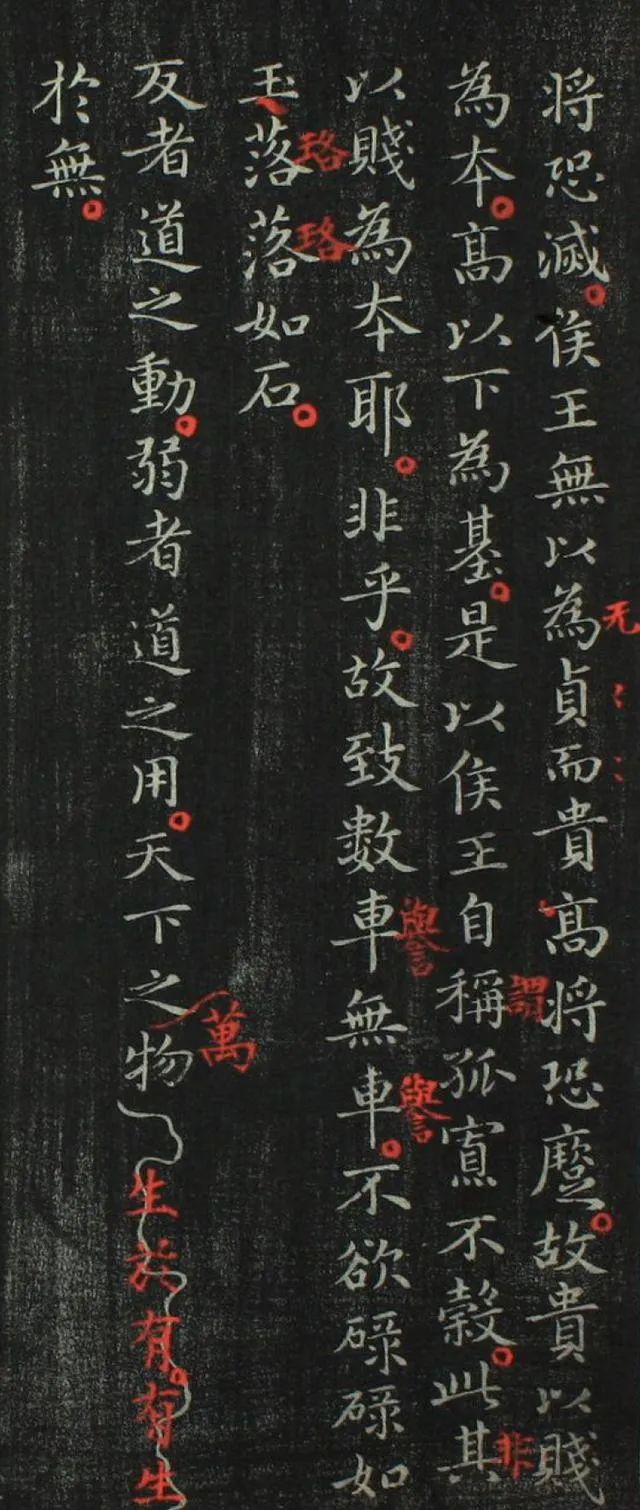 将恐滅。侯王無以為貞而貴高将恐蹷。故貴以賤
无
謂
為本。高以下為基。是以侯王自稱孤寡不穀。此其
非
譽
譽
以賤為本耶。非乎。故致數車無車。不欲碌碌如
珞
珞
玉落落如石。
萬
反者道之動。弱者道之用。天下之物
生於有。有生
於無。